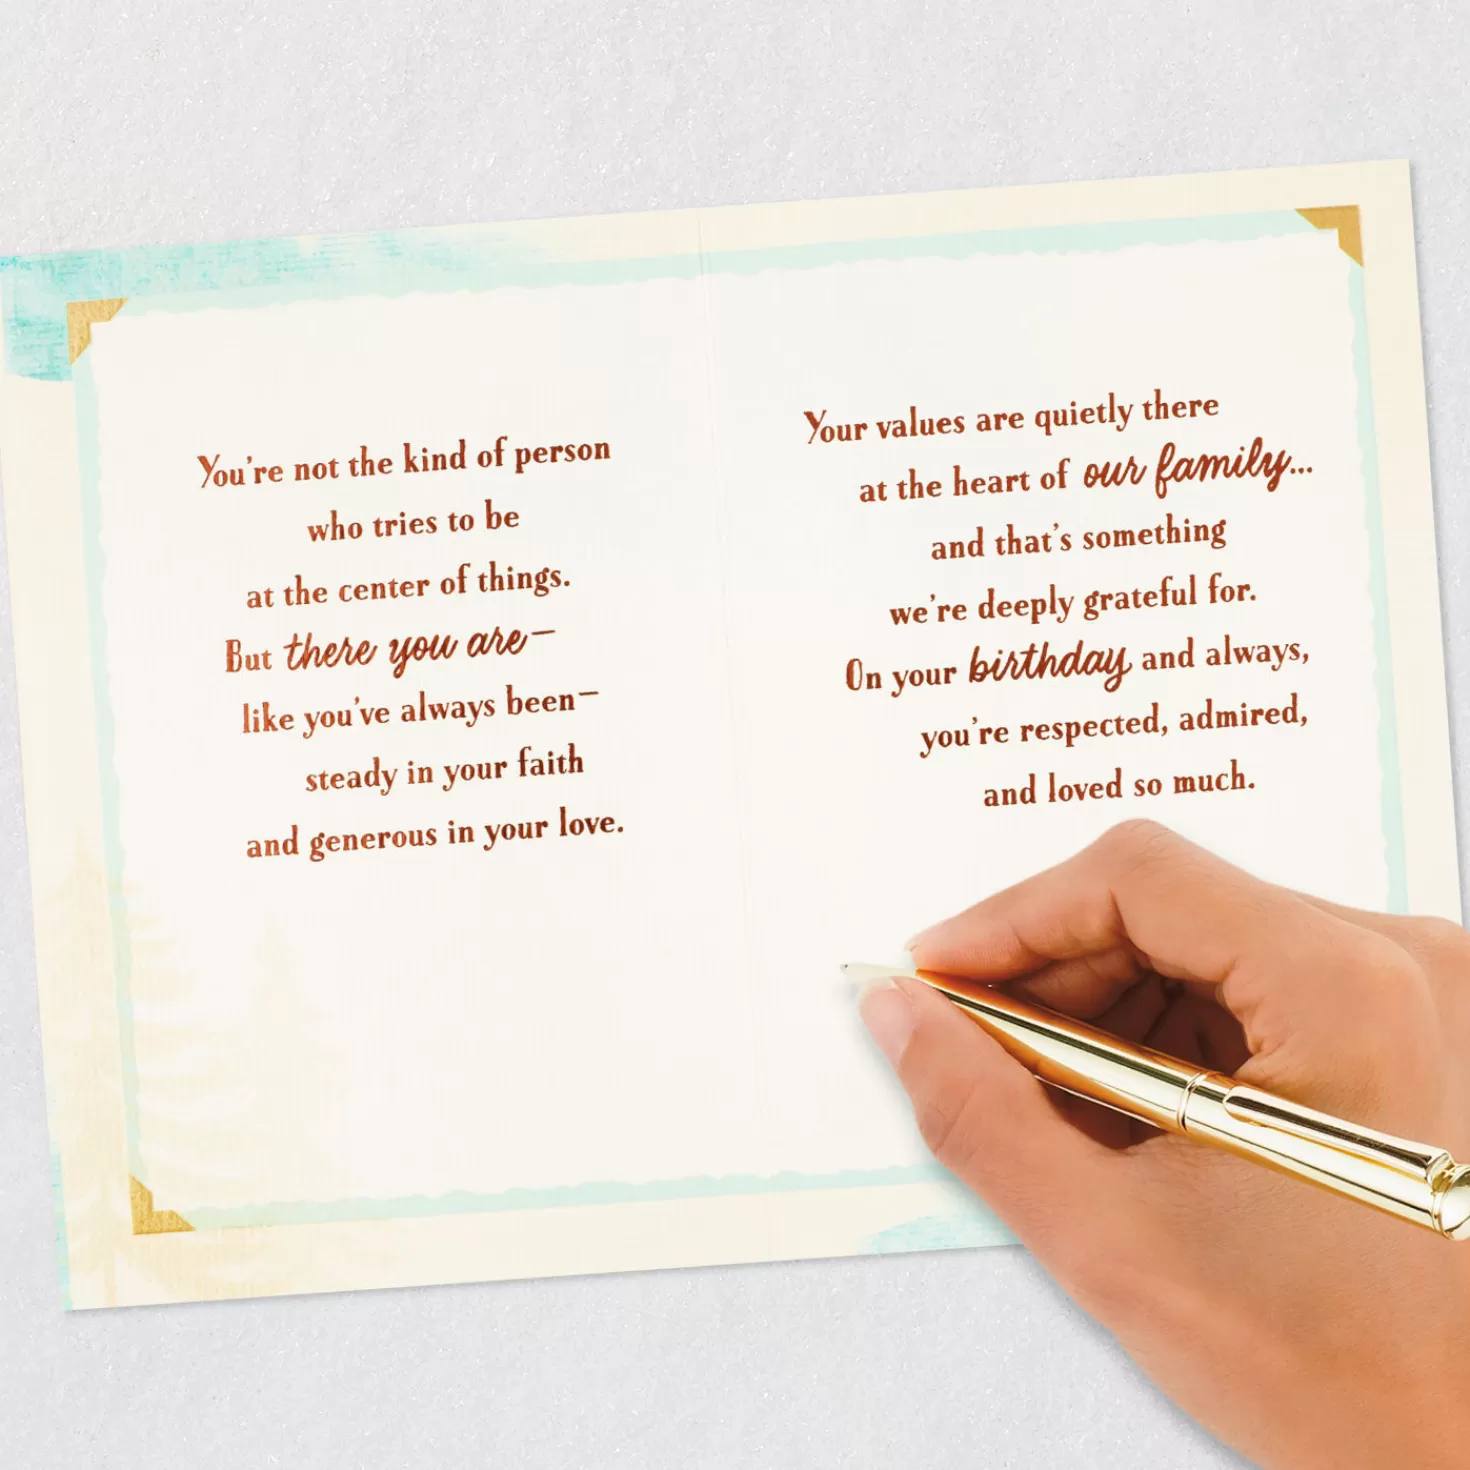 You're not the kind of person
who tries to be
at the center of things.
But there you are—
like you've always been—
steady in your faith
and generous in your love.
Your values are quietly there
at the heart of our family...
and that's something
we're deeply grateful for.
On your birthday and always,
you're respected, admired,
and loved so much.